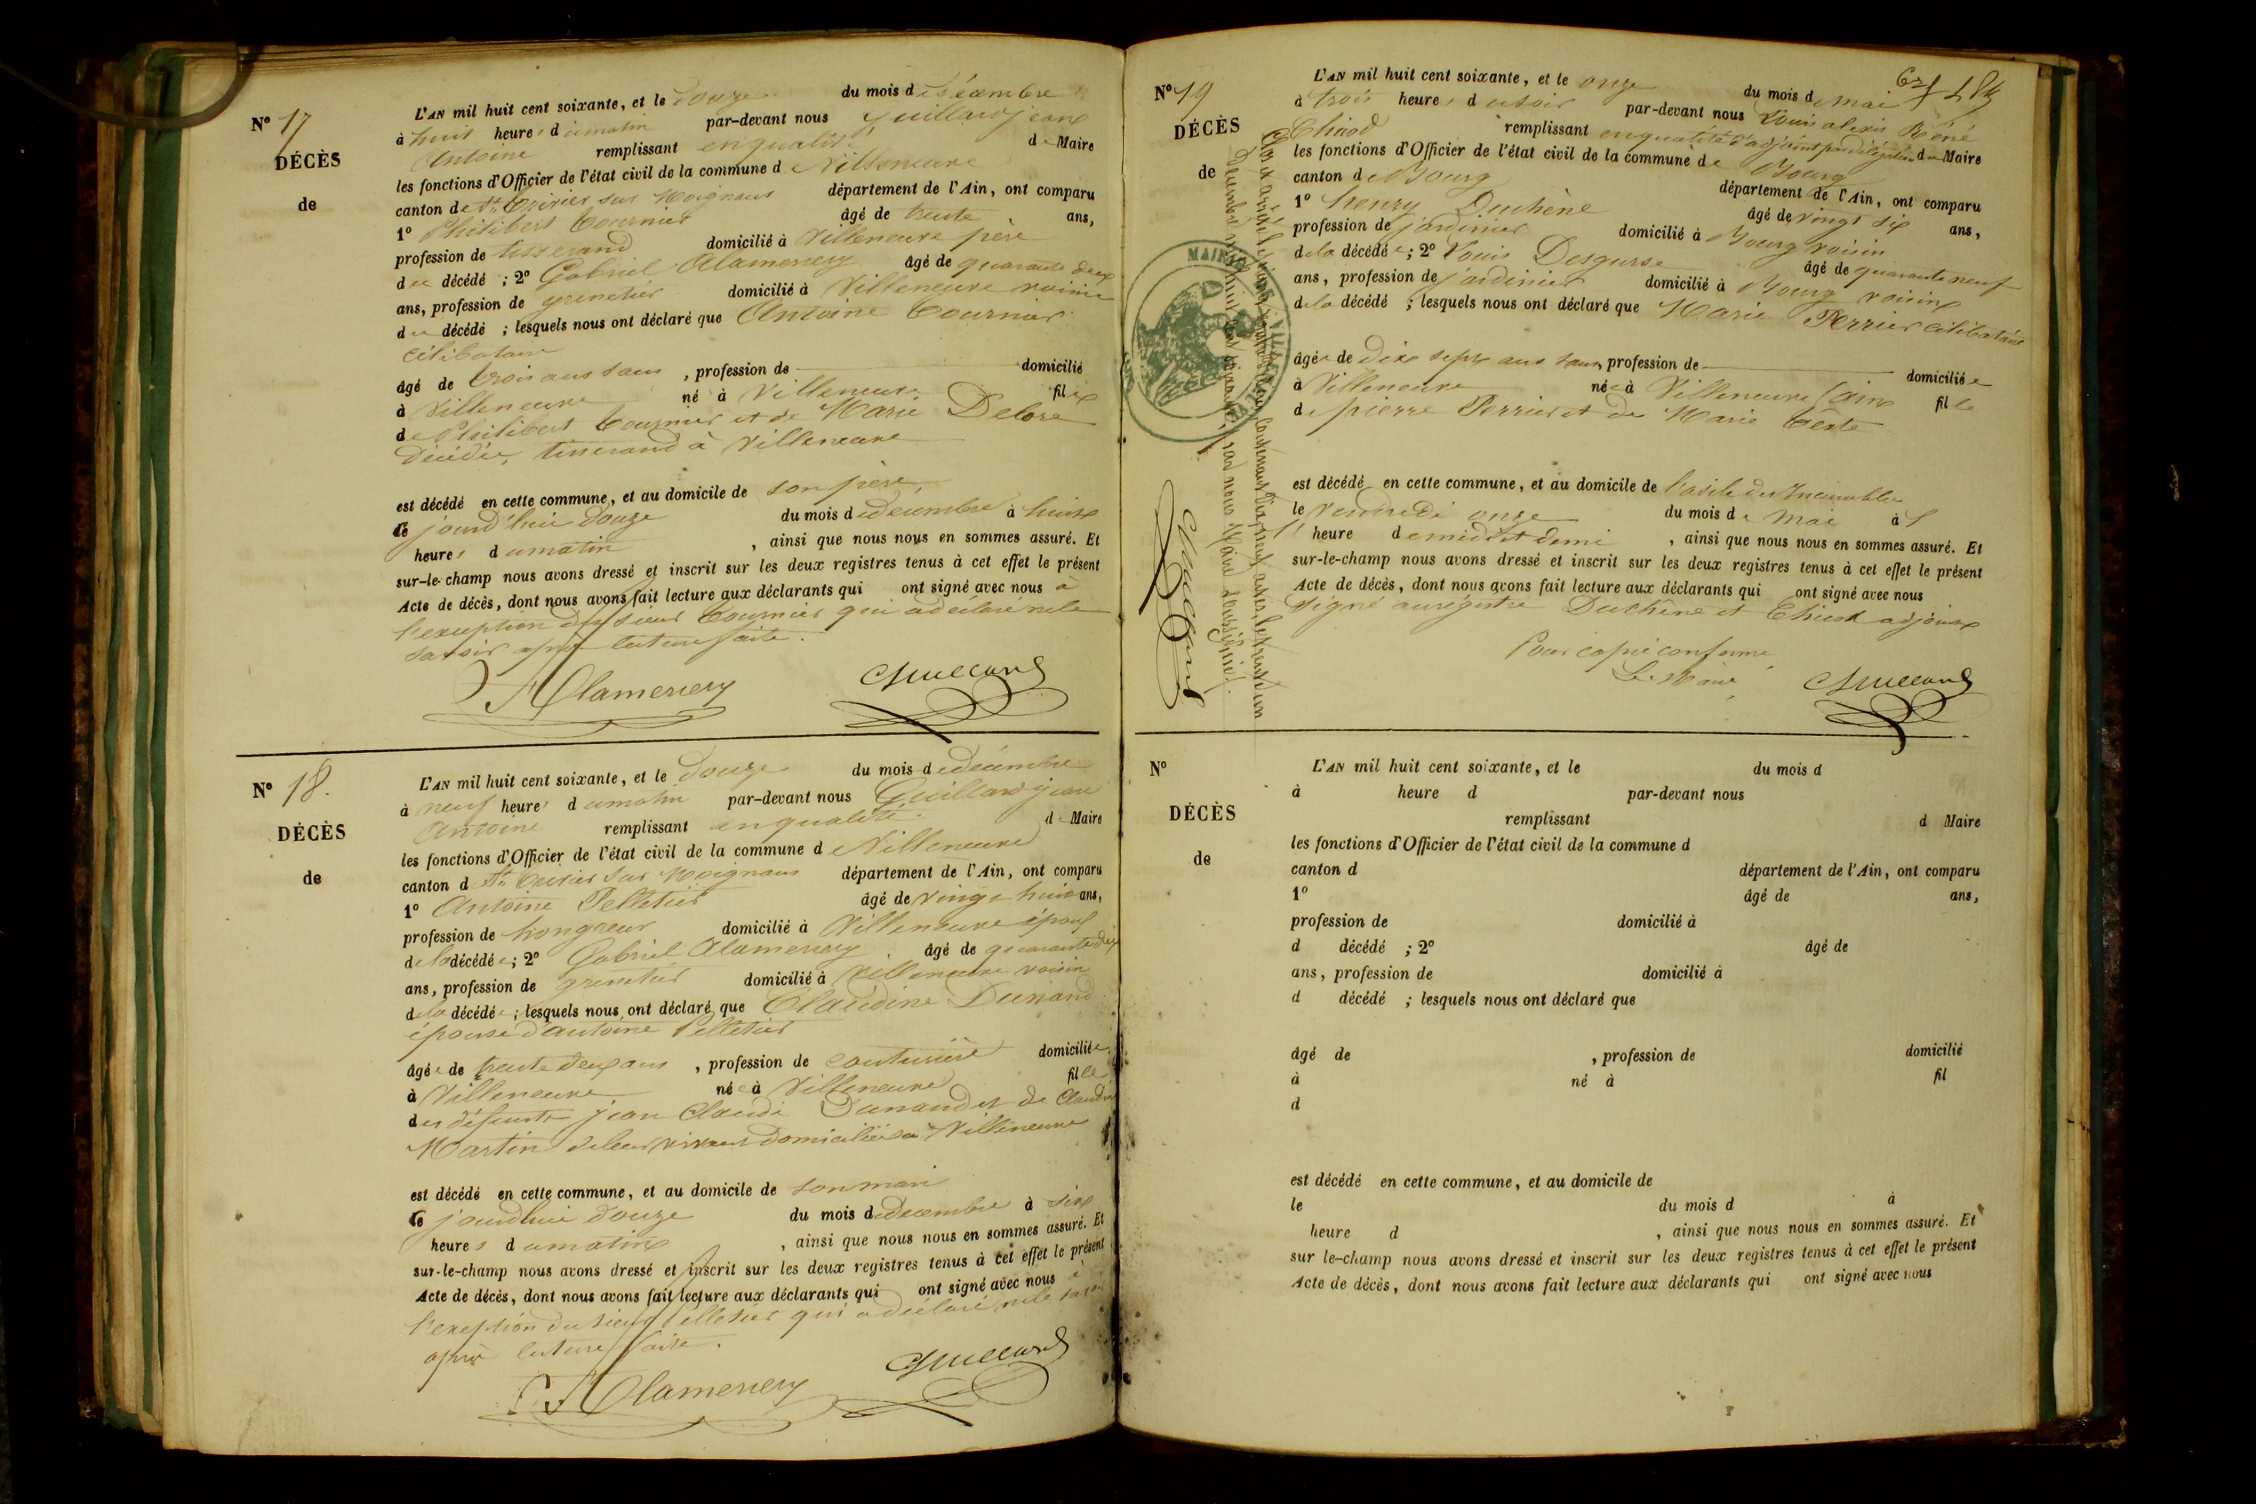 N° 17
DÉCÈS
de
L'AN mil huit cent soixante, et le douze du mois de décembre
à huit heures du matin par-devant nous Guillard jean
Antoine remplissant en qualité de Maire
les fonctions d'Officier de l'état civil de la commune de Villeneuve
canton de St. Trivier sur Moignans département de l'Ain, ont comparu
1° Philibert Tournier âgé de trente ans,
profession de tisserand domicilié à Villeneuve père
du décédé ; 2° Gabriel Alamercery âgé de quarante deux
ans, profession de grenetier domicilié à Villeneuve voisin
du décédé ; lesquels nous ont déclaré que Antoine Tournier
célibataire
âgé de trois ans sans , profession de domicilié
à Villeneuve né à Villeneuve fils
de Philibert Tournier et de Marie Delore
décédée, tisserand à Villeneuve
est décédé en cette commune, et au domicile de son père,
ce jourd'hui douze du mois de decembre à huit
heures du matin , ainsi que nous nous en sommes assuré. Et
sur-le-champ nous avons dressé et inscrit sur les deux registres tenus à cet effet le présent
Acte de décès, dont nous avons fait lecture aux déclarants qui ont signé avec nous à
l'exception du sieur Tournier qui a déclaré ne le
savoir après lecture faite.
Alamercery Guillard
N° 18.
DÉCÈS
de
L'AN mil huit cent soixante, et le douze du mois de décembre
à neuf heures du matin par-devant nous Guillard jean
Antoine remplissant en qualité de Maire
les fonctions d'Officier de l'état civil de la commune de Villeneuve
canton d St. Trivier sur Moignans département de l'Ain, ont comparu
1° Antoine Pelletier âgé de vingt huit ans,
profession de hongreur domicilié à Villeneuve époux
de la décédée ; 2° Gabriel Alamercery âgé de quarante deux
ans, profession de grenetier domicilié à Villeneuve voisin
de la décédée ; lesquels nous ont déclaré que Claudine Dunand
épouse d'antoine Pelletier
âgée de trente deux ans , profession de couturière domiciliée
à Villeneuve née à Villeneuve fille
des défunts jean Claude Dunand et de Claudine
Martin de leur vivant domiciliés à Villeneuve
est décédé en cette commune, et au domicile de son mari
ce jourd'hui douze du mois de decembre à six
heures du matin , ainsi que nous nous en sommes assuré. Et
sur-le-champ nous avons dressé et inscrit sur les deux registres tenus à cet effet le présent
Acte de décès, dont nous avons fait lecture aux déclarants qui ont signé avec nous à
l'exception du sieur Pelletier qui a déclaré ne le savoir
après lecture faite.
Alamercery Guillard
N° 19
DÉCÈS
de
L'AN mil huit cent soixante, et le onze du mois de mai
à trois heures du soir par-devant nous Louis alexis Réné
Chicod remplissant en qualité d'adjoint par délégation du Maire
les fonctions d'Officier de l'état civil de la commune de Bourg
canton de Bourg département de l'Ain, ont comparu
1° henry Duchène âgé de vingt six ans,
profession de jardinier domicilié à Bourg voisin
de la décédée ; 2° Louis Desgurse âgé de quarante neuf
ans, profession de jardinier domicilié à Bourg voisin
de la décédé ; lesquels nous ont déclaré que Marie Perrier célibataire
âgée de dix sept ans sans, profession de domiciliée
à Villeneuve née à Villeneuve (ain fille
de pierre Perrier et de Marie Teste
est décédé en cette commune, et au domicile de l'asile des Incurables
le vendredi onze du mois de mai à l'
heure de midi et demi , ainsi que nous nous en sommes assuré. Et
sur-le-champ nous avons dressé et inscrit sur les deux registres tenus à cet effet le présent
Acte de décès, dont nous avons fait lecture aux déclarants qui ont signé avec nous
signé au registre Duchène et Chicod adjoint
Pour copie conforme
Le Maire
Guillard
MAIRIE
décembre mil huit cent soixante, par nous Maire soussigné.
Guillard
N°
DÉCÈS
de
L'AN mil huit cent soixante, et le du mois d
à heure d par-devant nous
remplissant d Maire
les fonctions d'Officier de l'état civil de la commune d
canton d département de l'Ain, ont comparu
1° âgé de ans,
profession de domicilié à
d décédé ; 2° âgé de
ans, profession de domicilié à
d décédé ; lesquels nous ont déclaré que
âgé de , profession de domicilié
à né à fil
d
est décédé en cette commune, et au domicile de
le du mois d à
heure d , ainsi que nous nous en sommes assuré. Et
sur le-champ nous avons dressé et inscrit sur les deux registres tenus à cet effet le présent
Acte de décès, dont nous avons fait lecture aux déclarants qui ont signé avec nous